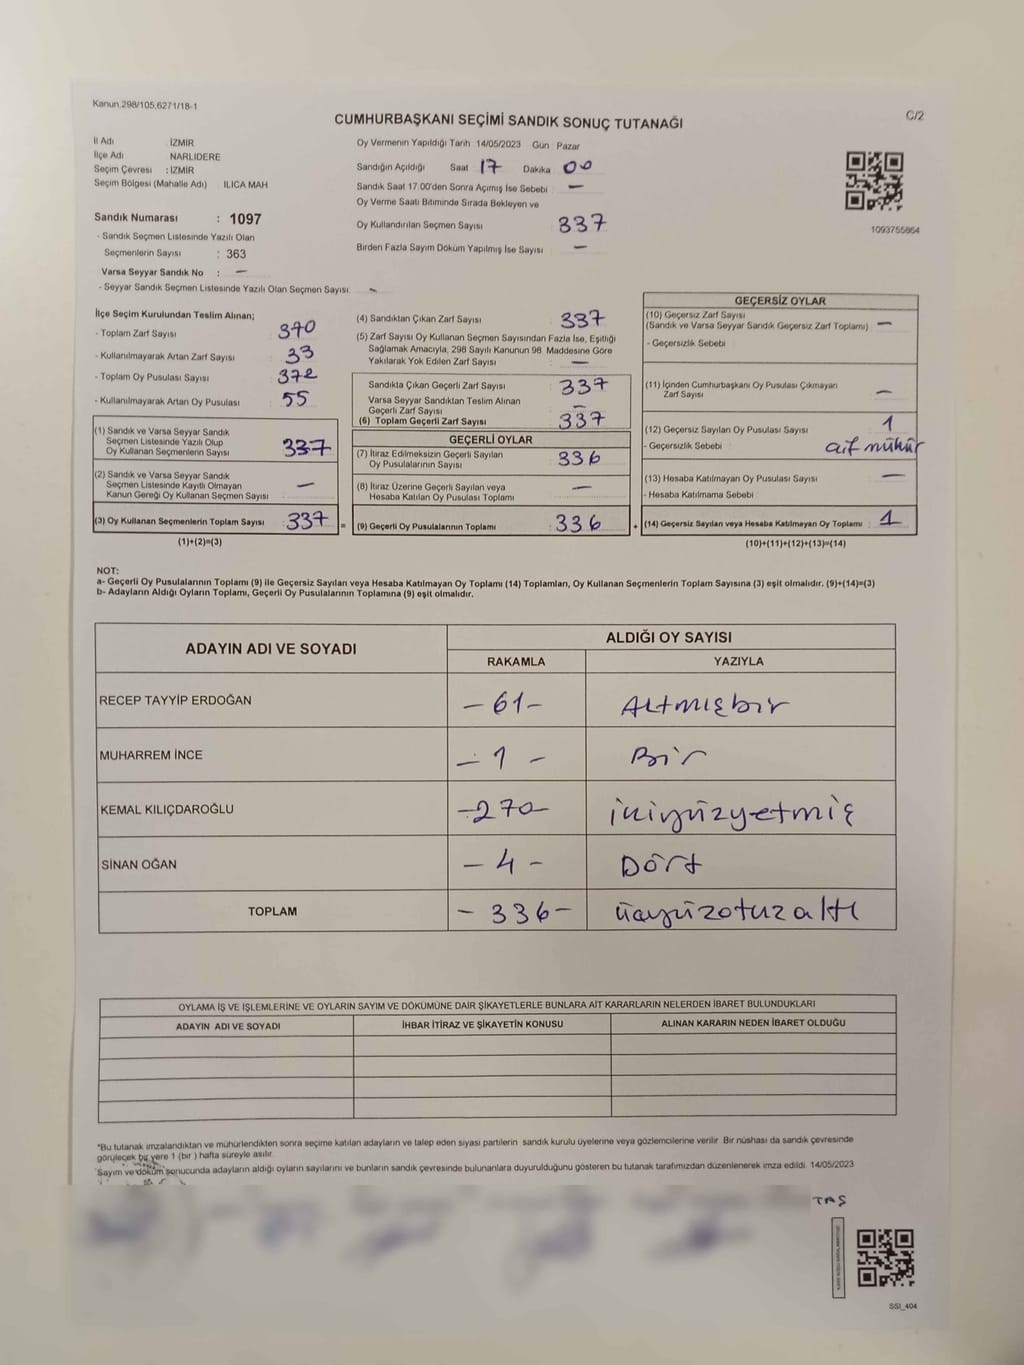 Kanun,298/105,6271/18-1
C/2
CUMHURBAŞKANI SEÇİMİ SANDIK SONUÇ TUTANAĞI
İl Adı İZMİR
İlçe Adı NARLIDERE
Seçim Çevresi : İZMİR
Seçim Bölgesi (Mahalle Adı) ILICA MAH
Sandık Numarası : 1097
- Sandık Seçmen Listesinde Yazılı Olan
Seçmenlerin Sayısı : 363
Varsa Seyyar Sandık No : —
- Seyyar Sandık Seçmen Listesinde Yazılı Olan Seçmen Sayısı: -
Oy Vermenin Yapıldığı Tarih 14/05/2023 Gün Pazar
Sandığın Açıldığı Saat 17 Dakika 00
Sandık Saat 17.00'den Sonra Açımış İse Sebebi —
Oy Verme Saati Bitiminde Sırada Bekleyen ve
Oy Kullandırılan Seçmen Sayısı 337
Birden Fazla Sayım Döküm Yapılmış İse Sayısı —
1093755864
İlçe Seçim Kurulundan Teslim Alınan;
- Toplam Zarf Sayısı 370
- Kullanılmayarak Artan Zarf Sayısı 33
- Toplam Oy Pusulası Sayısı 372
- Kullanılmayarak Artan Oy Pusulası 55
(1) Sandık ve Varsa Seyyar Sandık
Seçmen Listesinde Yazılı Olup
Oy Kullanan Seçmenlerin Sayısı 337
(2) Sandık ve Varsa Seyyar Sandık
Seçmen Listesinde Kayıtlı Olmayan
Kanun Gereği Oy Kullanan Seçmen Sayısı —
(3) Oy Kullanan Seçmenlerin Toplam Sayısı 337 =
(1)+(2)=(3)
(4) Sandıktan Çıkan Zarf Sayısı 337
(5) Zarf Sayısı Oy Kullanan Seçmen Sayısından Fazla İse, Eşitliği
Sağlamak Amacıyla, 298 Sayılı Kanunun 98. Maddesine Göre
Yakılarak Yok Edilen Zarf Sayısı : —
Sandıkta Çıkan Geçerli Zarf Sayısı 337
Varsa Seyyar Sandıktan Teslim Alınan
Geçerli Zarf Sayısı —
(6) Toplam Geçerli Zarf Sayısı 337
GEÇERLİ OYLAR
(7) İtiraz Edilmeksizin Geçerli Sayılan
Oy Pusulalarının Sayısı 336
(8) İtiraz Üzerine Geçerli Sayılan veya
Hesaba Katılan Oy Pusulası Toplamı —
(9) Geçerli Oy Pusulalarının Toplamı 336 +
GEÇERSİZ OYLAR
(10) Geçersiz Zarf Sayısı
(Sandık ve Varsa Seyyar Sandık Geçersiz Zarf Toplamı) —
- Geçersizlik Sebebi
(11) İçinden Cumhurbaşkanı Oy Pusulası Çıkmayan
Zarf Sayısı —
(12) Geçersiz Sayılan Oy Pusulası Sayısı 1
- Geçersizlik Sebebi çift mühür
(13) Hesaba Katılmayan Oy Pusulası Sayısı —
- Hesaba Katılmama Sebebi
(14) Geçersiz Sayılan veya Hesaba Katılmayan Oy Toplamı : 1
(10)+(11)+(12)+(13)=(14)
NOT:
a- Geçerli Oy Pusulalarının Toplamı (9) ile Geçersiz Sayılan veya Hesaba Katılmayan Oy Toplamı (14) Toplamları, Oy Kullanan Seçmenlerin Toplam Sayısına (3) eşit olmalıdır. (9)+(14)=(3)
b- Adayların Aldığı Oyların Toplamı, Geçerli Oy Pusulalarının Toplamına (9) eşit olmalıdır.
ADAYIN ADI VE SOYADI ALDIĞI OY SAYISI
RAKAMLA YAZIYLA
RECEP TAYYİP ERDOĞAN -61- Altmışbir
MUHARREM İNCE -1- Bir
KEMAL KILIÇDAROĞLU -270- ikiyüzyetmiş
SİNAN OĞAN -4- Dört
TOPLAM -336- üçyüzotuzaltı
OYLAMA İŞ VE İŞLEMLERİNE VE OYLARIN SAYIM VE DÖKÜMÜNE DAİR ŞİKAYETLERLE BUNLARA AİT KARARLARIN NELERDEN İBARET BULUNDUKLARI
ADAYIN ADI VE SOYADI İHBAR İTİRAZ VE ŞİKAYETİN KONUSU ALINAN KARARIN NEDEN İBARET OLDUĞU
*Bu tutanak imzalandıktan ve mühürlendikten sonra seçime katılan adayların ve talep eden siyasi partilerin sandık kurulu üyelerine veya gözlemcilerine verilir. Bir nüshası da sandık çevresinde
görülecek bir yere 1 (bir) hafta süreyle asılır.
Sayım ve döküm sonucunda adayların aldığı oyların sayılarını ve bunların sandık çevresinde bulunanlara duyurulduğunu gösteren bu tutanak tarafımızdan düzenlenerek imza edildi. 14/05/2023
TAŞ
SSI_404